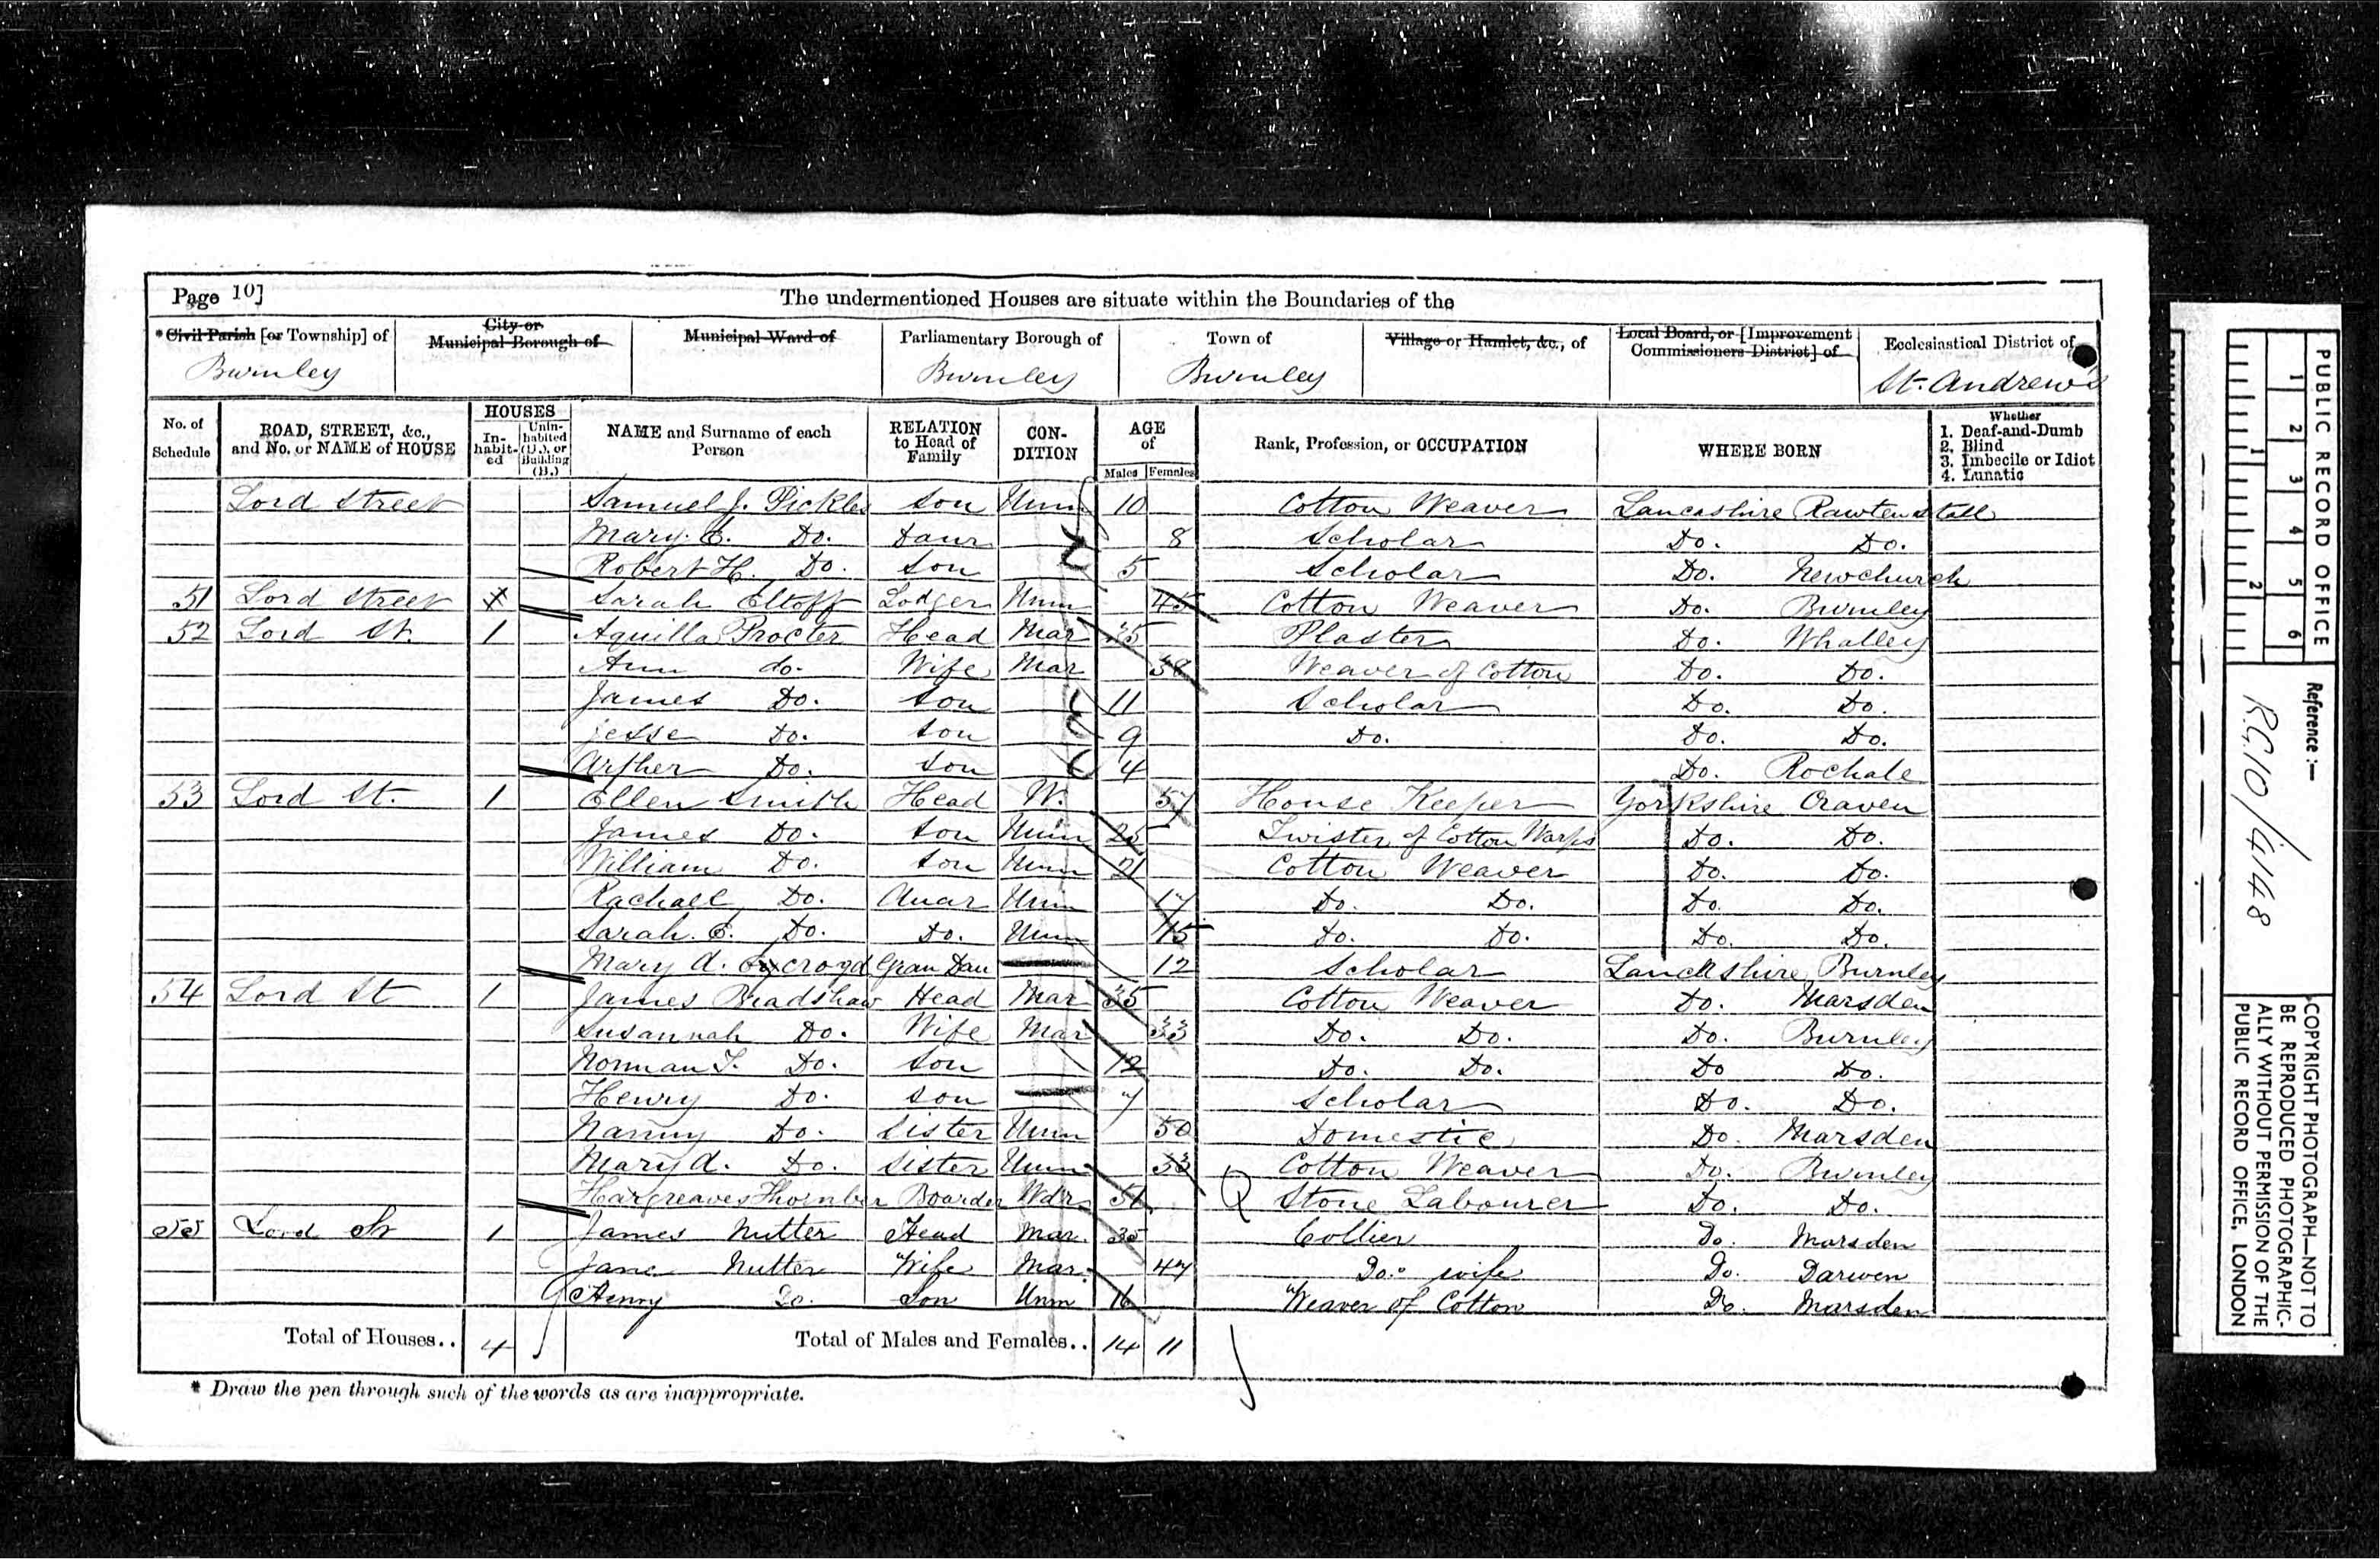 Page 10]
The undermentioned Houses are situate within the Boundaries of the
* Civil Parish [or Township] of
City or Municipal Borough of
Municipal Ward of
Parliamentary Borough of
Town of
Village or Hamlet, &c., of
Local Board, or [Improvement Commissioners District] of
Ecclesiastical District of
Burnley Burnley Burnley St. Andrew's
No. of Schedule
ROAD, STREET, &c., and No. or NAME of HOUSE
HOUSES
In-habit-ed
Unin-habited (U.), or Building (B.)
NAME and Surname of each Person
RELATION to Head of Family
CON-DITION
AGE of
Males Females
Rank, Profession, or OCCUPATION
WHERE BORN
Whether
1. Deaf-and-Dumb
2. Blind
3. Imbecile or Idiot
4. Lunatic
Lord Street Samuel J. Pickles Son Unm 10 Cotton Weaver Lancashire Rawtenstall
Mary E. Do. Daur 8 Scholar Do. Do.
Robert H. Do. Son 5 Scholar Do. Newchurch
51 Lord Street Sarah Eltoff Lodger Unm 45 Cotton Weaver Do. Burnley
52 Lord St. 1 Aquilla Procter Head Mar Plaster Do. Whalley
Ann do. Wife Mar 38 Weaver of Cotton Do. Do.
James Do. Son 11 Scholar Do. Do.
Jesse Do. Son 9 Do. Do. Do.
Arther Do. Son 4 Do. Rochale
53 Lord St. 1 Ellen Smith Head W. 57 House Keeper Yorkshire Craven
James Do. Son Unm 25 Twister of Cotton Warps Do. Do.
William Do. Son Unm 21 Cotton Weaver Do. Do.
Rachael Do. Unm 17 Do. Do. Do. Do.
Sarah. E. Do. Do. Unm 15 Do. Do. Do. Do.
Mary A. Gran Dau 12 Scholar Lancashire Burnley
54 Lord St 1 James Bradshaw Head Mar 35 Cotton Weaver Do. Marsden
Susannah Do. Wife Mar 33 Do. Do. Do. Burnley
Norman T. Do. Son 12 Do. Do. Do Do.
Henry Do. Son 7 Scholar Do. Do.
Nanny Do. Sister Unm 50 Domestic Do. Marsden
Mary A. Do. Sister Unm 33 Cotton Weaver Do. Burnley
Hargreaves Thornber Boarder Wdr 51 Stone Labourer Do. Do.
55 Lord St 1 James Nutter Head Mar. 35 Collier Do. Marsden
Jane Nutter Wife Mar. 47 Do. wife Do. Darwen
Henry Do. Son Unm 16 Weaver of Cotton Do. Marsden
Total of Houses.. 4
Total of Males and Females.. 14 11
* Draw the pen through such of the words as are inappropriate.
PUBLIC RECORD OFFICE
1 2 3 4 5 6
1 2
Reference :—
R.G.10/4148
COPYRIGHT PHOTOGRAPH—NOT TO
BE REPRODUCED PHOTOGRAPHIC-
ALLY WITHOUT PERMISSION OF THE
PUBLIC RECORD OFFICE, LONDON